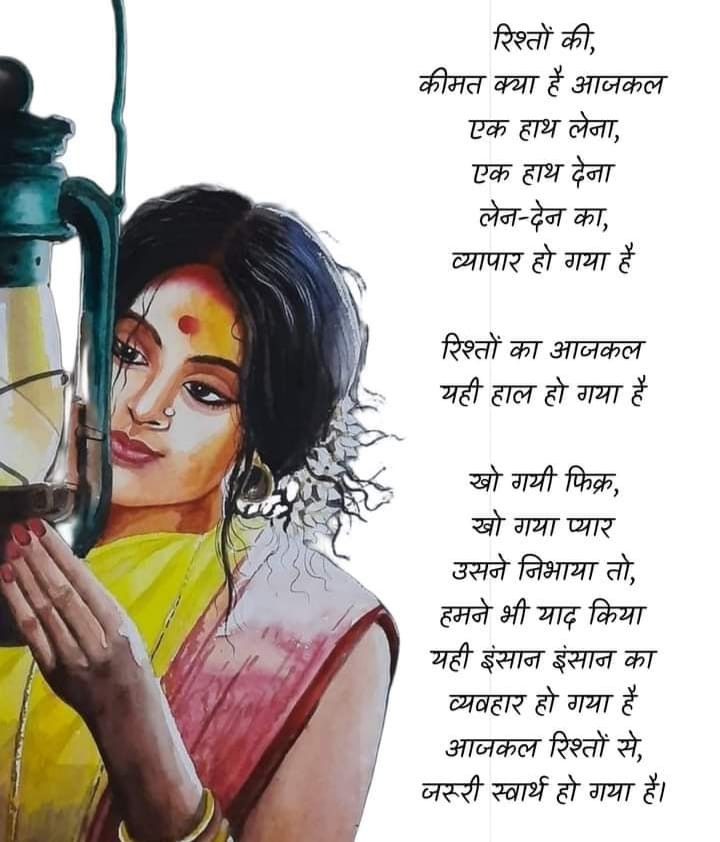 रिश्तों की,
कीमत क्या है आजकल
एक हाथ लेना,
एक हाथ देना
लेन-देन का,
व्यापार हो गया है
रिश्तों का आजकल
यही हाल हो गया है
खो गयी फिक्र,
खो गया प्यार
उसने निभाया तो,
हमने भी याद किया
यही इंसान इंसान का
व्यवहार हो गया है
आजकल रिश्तों से,
जरूरी स्वार्थ हो गया है।